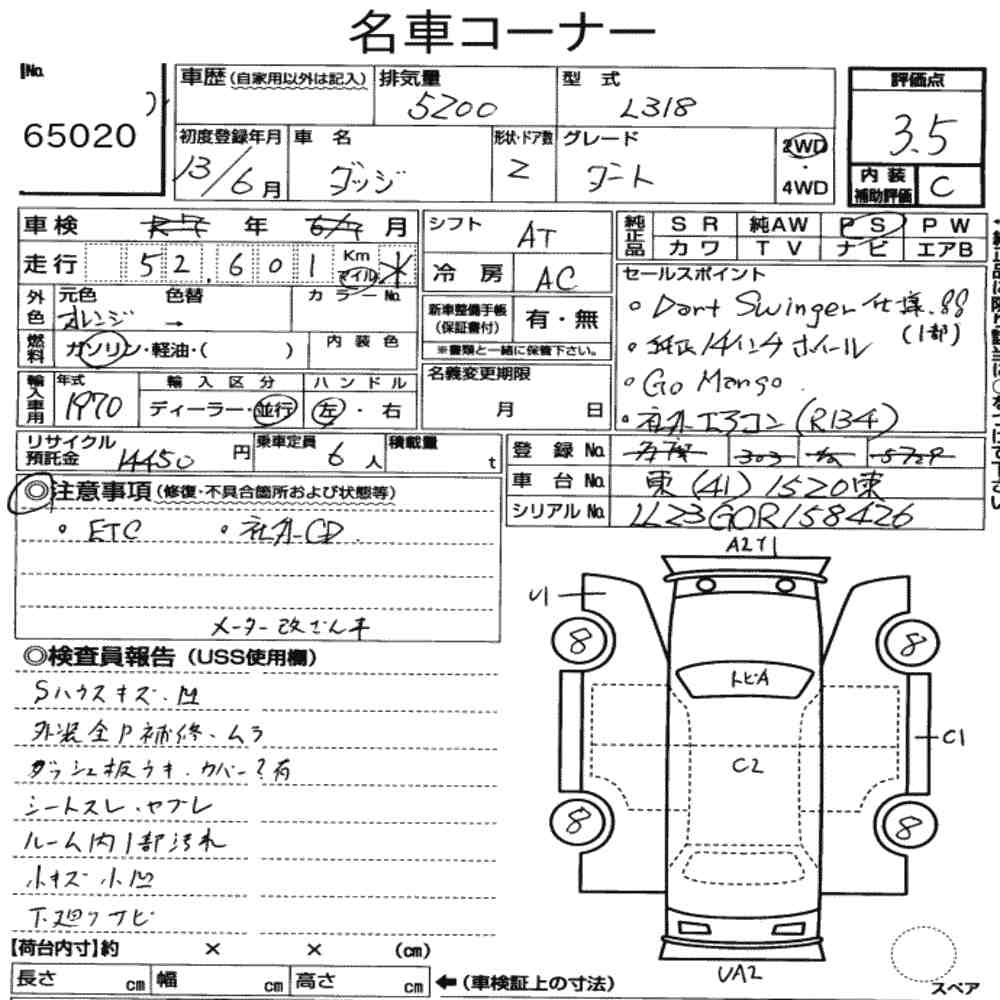 名車コーナー
No.
65020
車歴(自家用以外は記入) 排気量 5200 型式 L318
初度登録年月 13/6月 車名 ダッジ 形状・ドア数 2 グレード ダート 2WD・4WD
評価点 3.5
内装補助評価 C
車検 年 月
走行 52,601 Km マイル
シフト AT
冷房 AC
純正品 SR 純AW PS PW
カワ TV ナビ エアB
外色 元色 色替 カラーNo.
オレンジ →
燃料 ガソリン・軽油・( ) 内装色
新車整備手帳(保証書付) 有・無
※書類と一緒に保管下さい。
セールスポイント
。Dart Swinger仕様.88(1部)
・純正14インチホイール
。Go Mango.
・社外エアコン(R134)
輸入車用 年式 1970 輸入区分 ディーラー・並行 ハンドル 左・右
名義変更期限 月 日
リサイクル預託金 14450円 乗車定員 6人 積載量 t
登録No.
車台No. 東(41)1520東
シリアルNo. LL23G0R158426
◎注意事項(修復・不具合箇所および状態等)
。ETC 。社外CD.
メーター改ざん車
◎検査員報告(USS使用欄)
Sハウスキズ.凹
外装全P補修.ムラ
ダッシュ板ウキ.カバー2有
シートスレ.ヤブレ
ルーム内1部汚れ
小キズ小凹
下廻りサビ
A2Y1
U1
8
8
トビA
C2
C1
8
8
UA2
スペア
【荷台内寸】約 × × (cm)
長さ cm 幅 cm 高さ cm ←(車検証上の寸法)